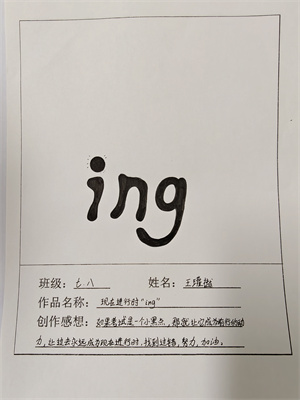 ing
班级：七.八 姓名：王
作品名称：现在进行时"ing"
创作感想：如果考试是一个小黑点，那就让它成为前行的动
力，让过去永远成为现在进行时，找到过错，努力，加油。